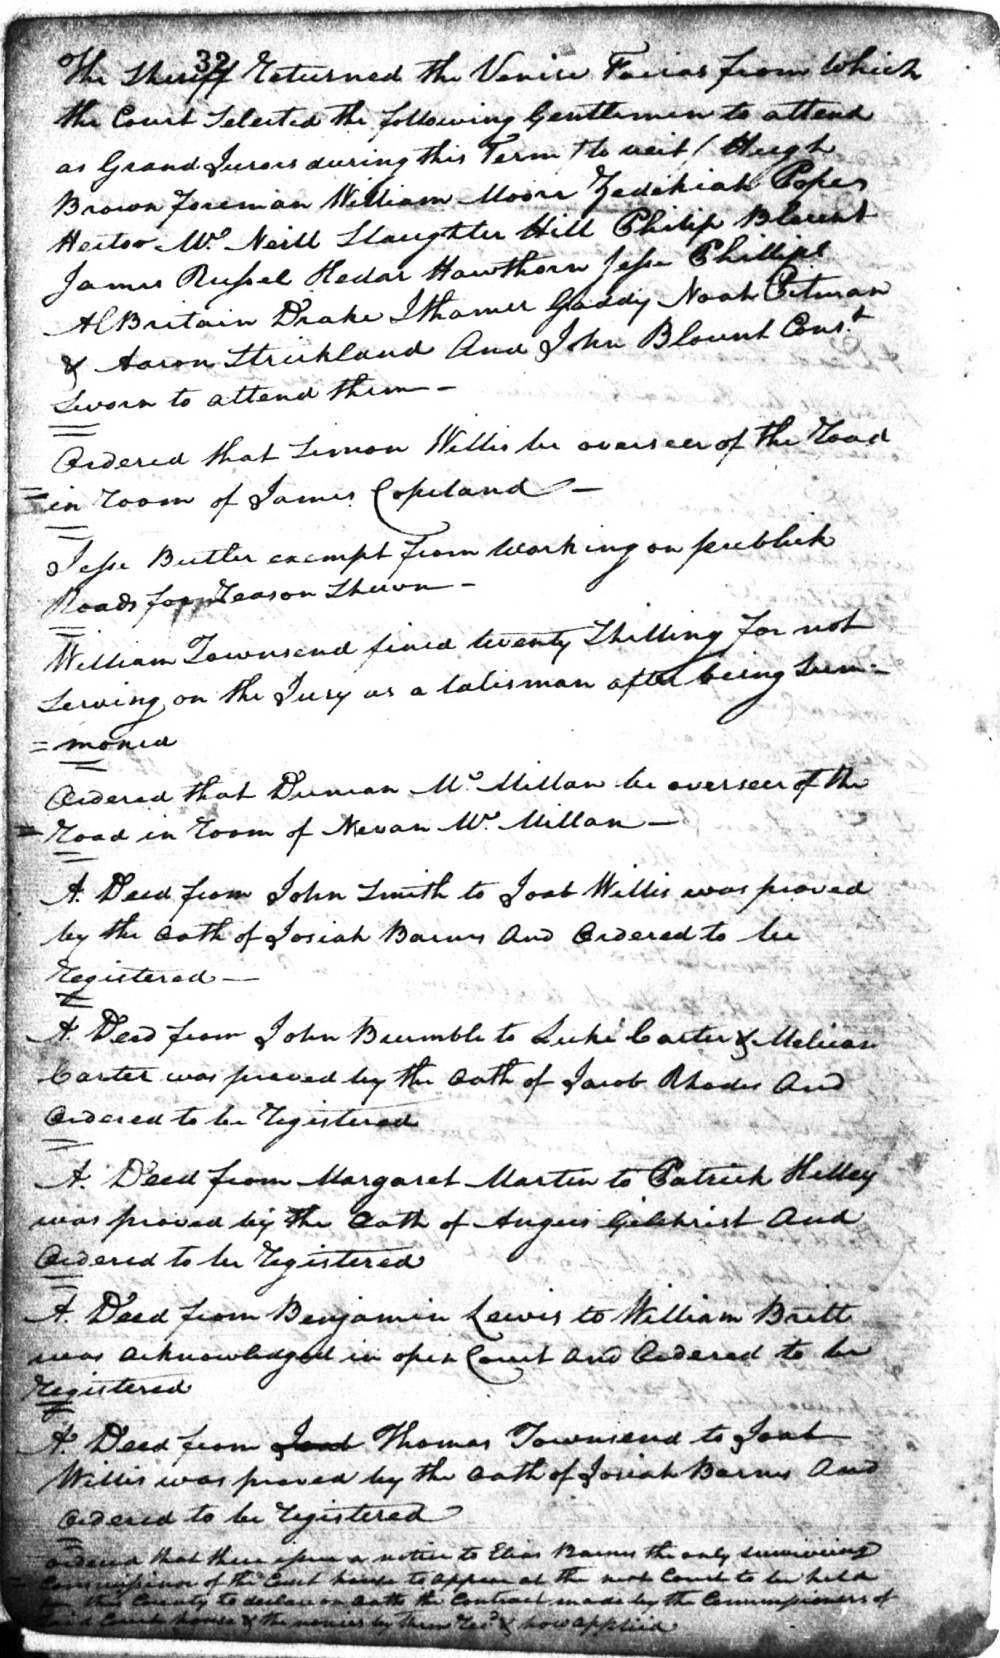 32
The Sheriff Returned the Venire Facias from which
the Court Selected the following Gentlemen to attend
as Grand Jurors during this Term (to wit) Hugh
Brown foreman William Moore Zedekiah Popes
Hector Mc Neill Slaughter Hill Philip Blount
James Russel Kedar Hawthorn Jesse Phillips
Al Britain Drake Ithamer Gaddy Noah Pitman
& Aaron Strickland And John Blount Const
Sworn to attend them -
Ordered that Simon Willis be overseer of the Road
= in Room of James Copeland -
Jesse Butler exempt from working on publick
Roads for Reason Shewn -
William Townsend fined twenty Shilling for not
Serving on the Jury as a talisman after being Sum=
= moned
Ordered that Duncan Mc Millan be overseer of the
= Road in Room of Nevan Mc Millan -
A Deed from John Smith to Joab Willis was proved
by the Oath of Josiah Barnes And Ordered to be
Registered -
A Deed from John Brumble to Luke Carter &
Carter was proved by the Oath of Jacob Rhodes And
Ordered to be Registered
A Deed from Margaret Martin to Patrick Kelley
was proved by the Oath of Angus Gilchrist And
Ordered to be Registered
A Deed from Benjamin Lewis to William Britt
was acknowledged in open Court And Ordered to be
Registered
A Deed from Joab Thomas Townsend to Joab
Willis was proved by the Oath of Josiah Barnes And
Ordered to be Registered
ordered that there issue a notice to Elias Barnes the only surviving
Commissioner of the Court house to appear at the next Court to be held
for this County to declare on oath the Contract made by the Commissioners of
said Court house & the monies by them Recd & how applied